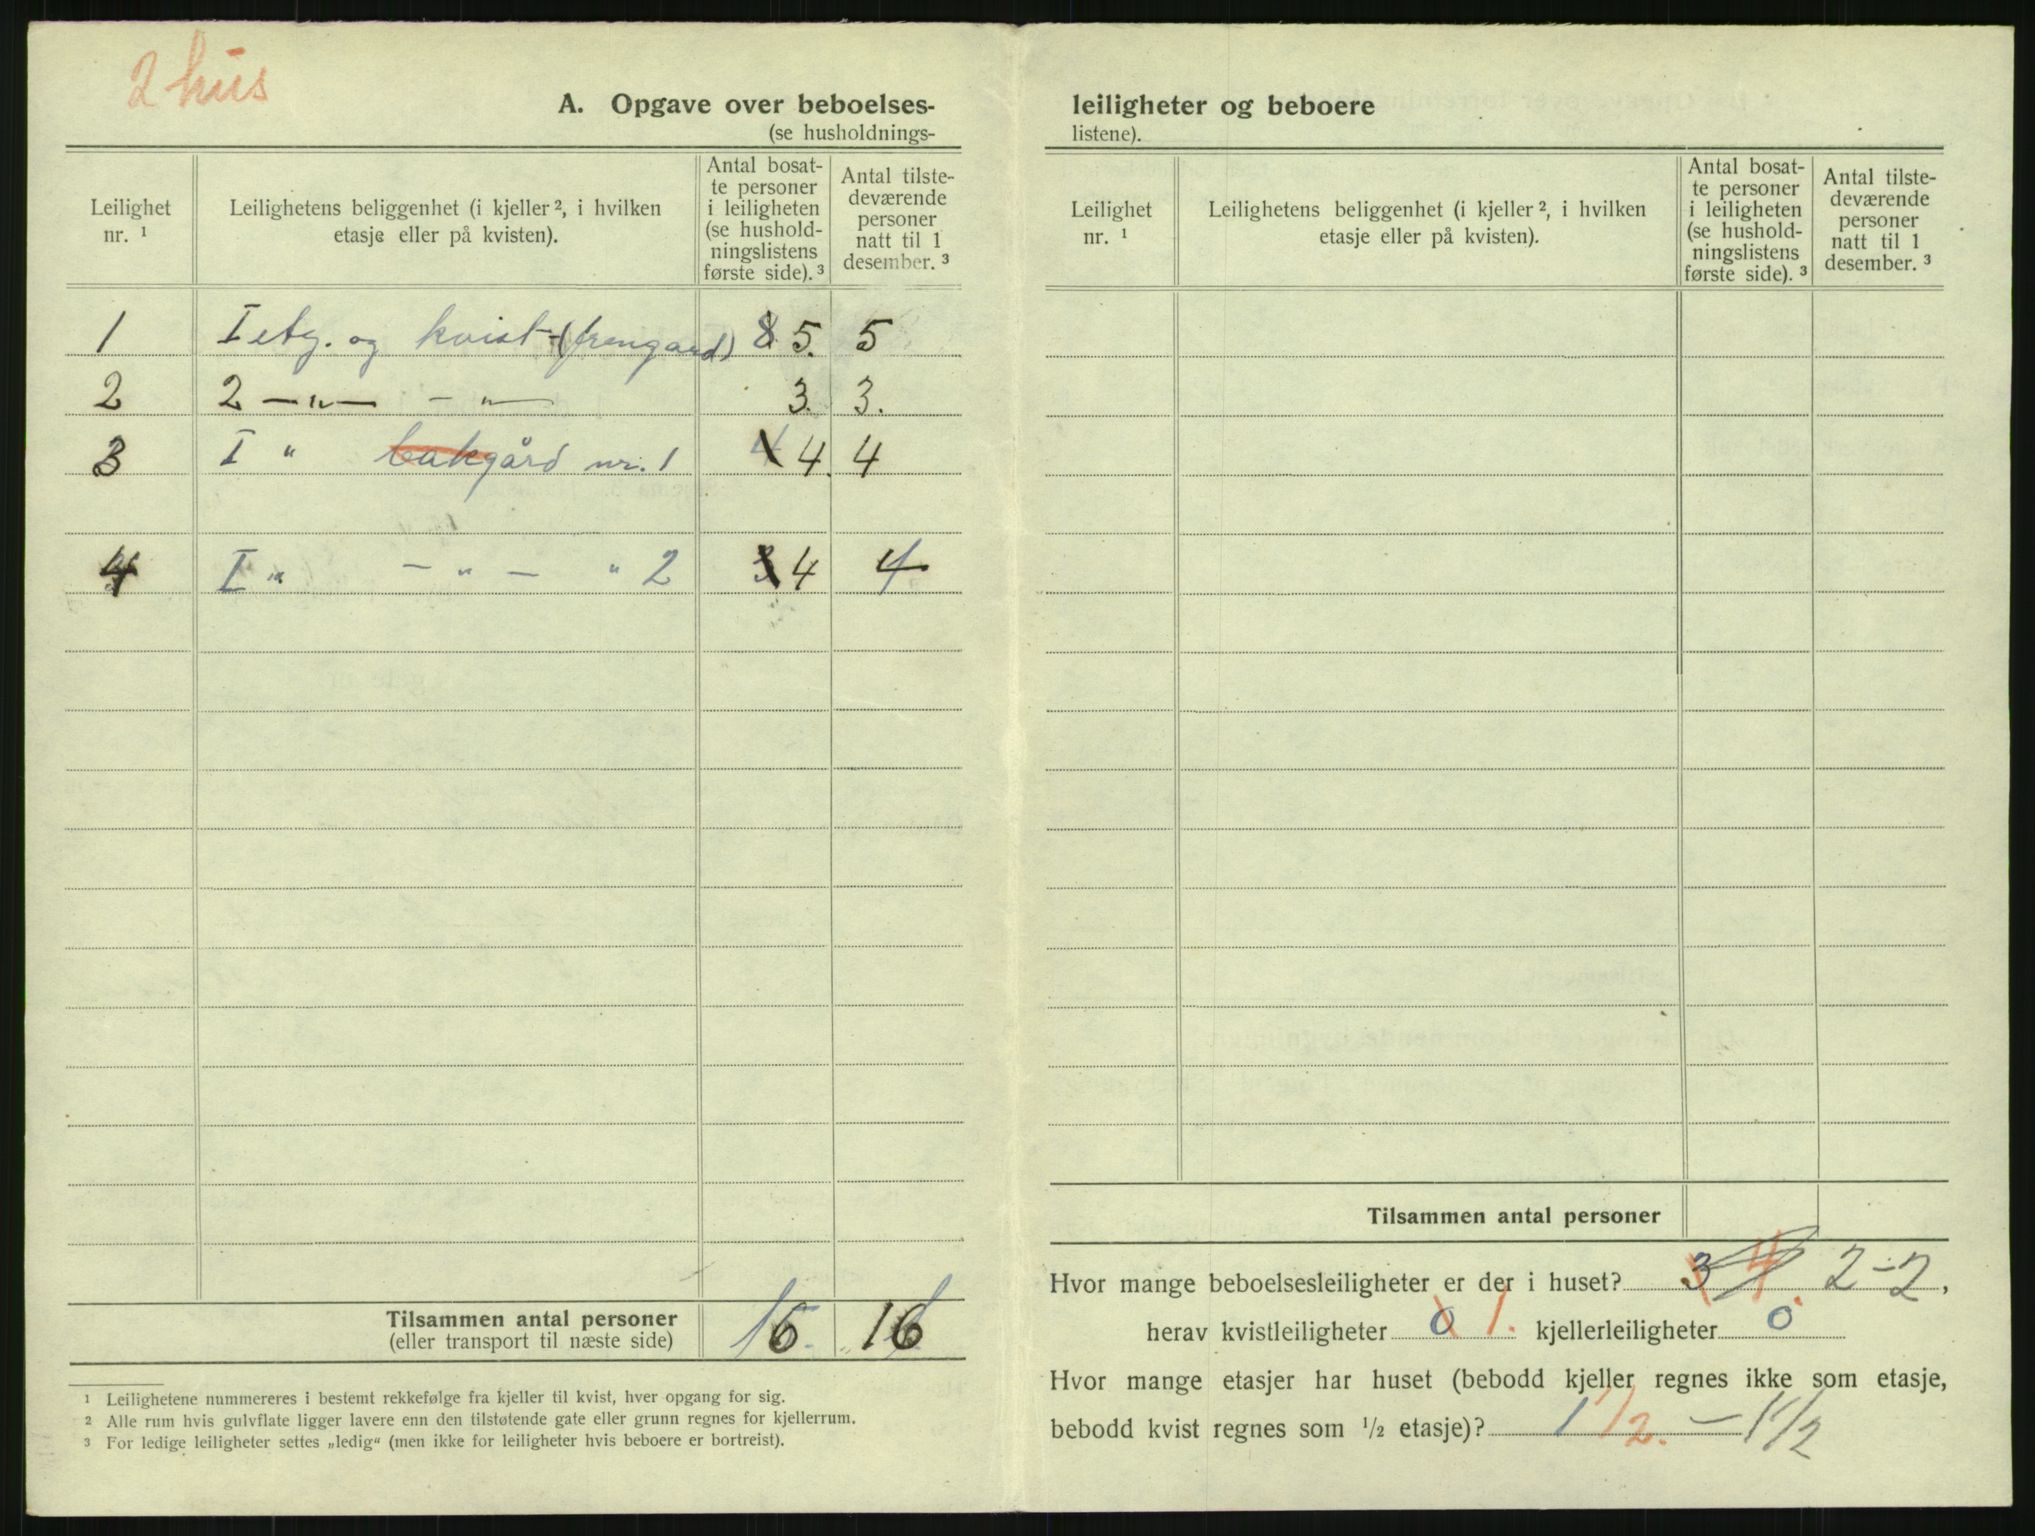 2 hus
A. Opgave over beboelses-
(se husholdnings-
Leilighet nr. ¹
Leilighetens beliggenhet (i kjeller ², i hvilken etasje eller på kvisten).
Antal bosatte personer i leiligheten (se husholdningslistens første side). ³
Antal tilstedeværende personer natt til 1 desember. ³
1 I etg. og kvist (frengard) 8 5. 5
2 2 — " — — " — 3. 3.
3 I " bakgård nr. 1 4 4. 4
4 I " — " — " 2 3 4 4
Tilsammen antal personer 16. 16
(eller transport til næste side)
¹ Leilighetene nummereres i bestemt rekkefølge fra kjeller til kvist, hver opgang for sig.
² Alle rum hvis gulvflate ligger lavere enn den tilstøtende gate eller grunn regnes for kjellerrum.
³ For ledige leiligheter settes „ledig“ (men ikke for leiligheter hvis beboere er bortreist).
leiligheter og beboere
listene).
Leilighet nr. ¹
Leilighetens beliggenhet (i kjeller ², i hvilken etasje eller på kvisten).
Antal bosatte personer i leiligheten (se husholdningslistens første side). ³
Antal tilstedeværende personer natt til 1 desember. ³
Tilsammen antal personer
Hvor mange beboelsesleiligheter er der i huset? 3 4 2-2,
herav kvistleiligheter 0 1. kjellerleiligheter 0
Hvor mange etasjer har huset (bebodd kjeller regnes ikke som etasje,
bebodd kvist regnes som ½ etasje)? 1 1/2. — 1 1/2